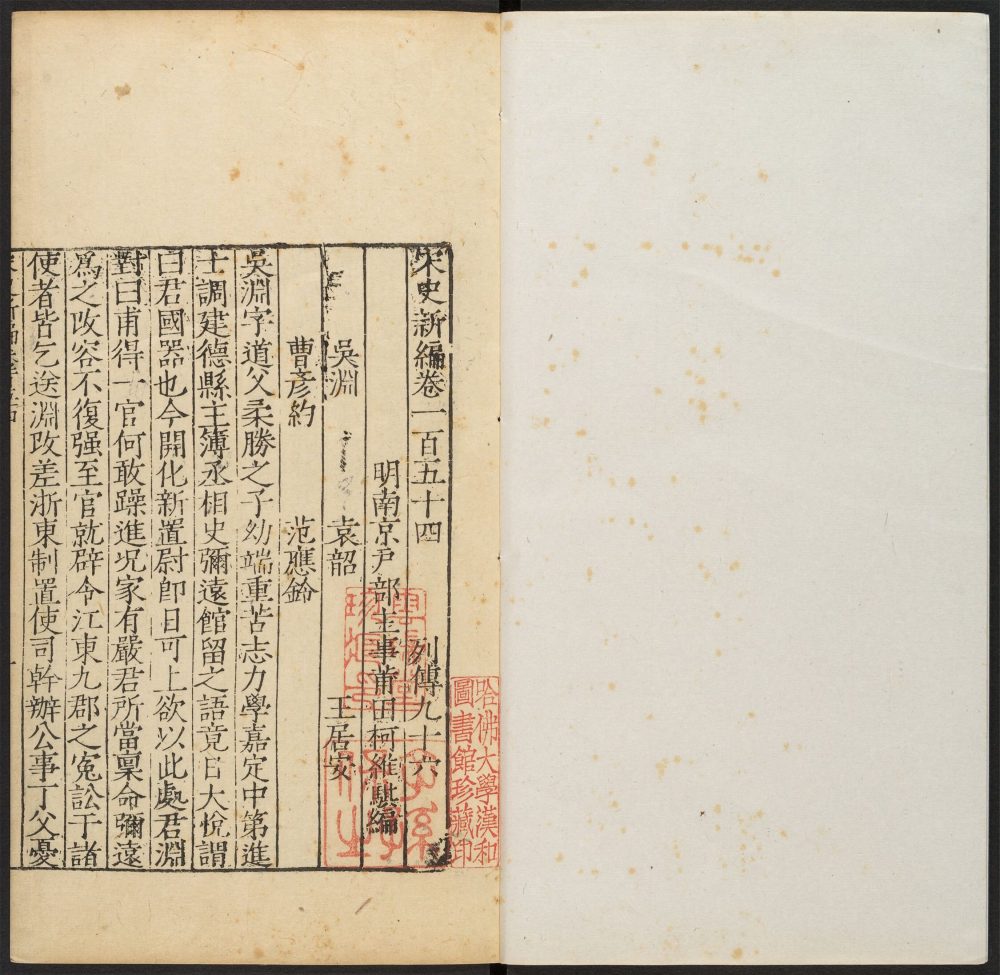 宋史新編卷一百五十四 列傳九十六
明南京戸部主事莆田柯維騏編
吳淵 袁韶 王居安
曹彦約 范應鈴
吳淵字道父柔勝之子幼端重苦志力學嘉定中第進
士調建德縣主簿丞相史彌遠館留之語竟日大悅謂
曰君國器也今開化新置尉卽日可上欲以此處君淵
對曰甫得一官何敢躁進况家有嚴君所當稟命彌遠
爲之改容不復强至官就辟令江東九郡之寃訟于諸
使者皆乞送淵改差浙東制置使司幹辦公事丁父憂
哈佛大學漢和
圖書館珍藏印